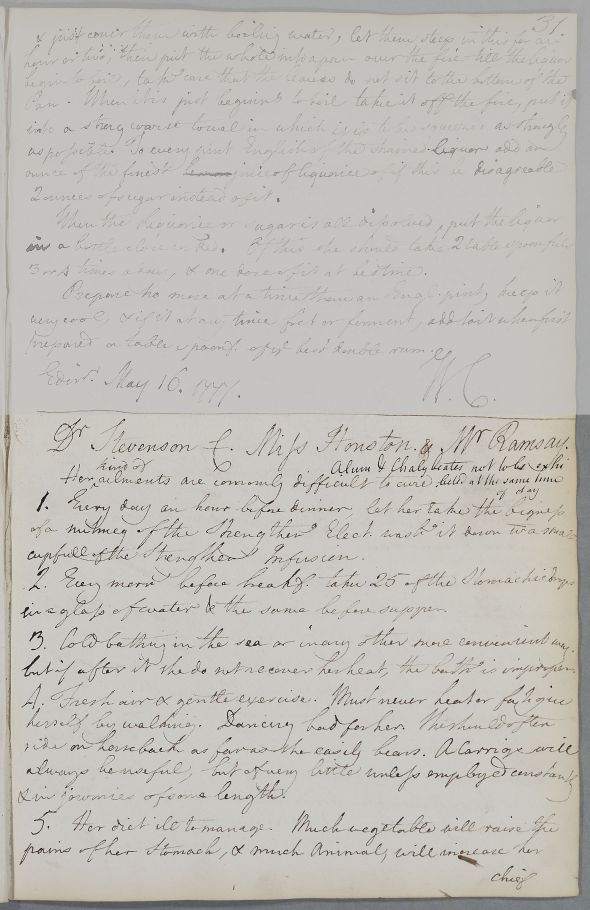 31
& just cover them with boiling water, let them steep in this for an
hour or two, then put the whole into a pan over the fire till the liquor
begin to boil, take care that the leaves do not sit to the bottom of the
Pan. When it is just beginning to boil take it off the fire, put it
into a strong coarse towel in which it is to be squeezed as strongly
as possible. To every pint English of the strained liquor add an
ounce of the finest juice of liquorice or if this is disagreeable
2 ounces of sugar instead of it.
When the liquorice or sugar is all dissolved, put the liquor
in a bottle close corked. Of this she should take 2 table spoonfuls
3 or 4 times a day, & one dose of it at bedtime.
Prepare no more at a time than an Engl. pint, keep it
very cool, & if it at any time fret or ferment, add to it when first
prepared a table spoonf. of the best double rum.
Edinr. May 16. 1777. W. C.
Dr Stevenson f. Miss Houston. & Mr Ramsay.
kind of Alum & Chalybeates not to be exhi
Her ailments are commonly difficult to cure. bited at the same time
of day
1. Every day an hour before dinner, let her take the bigness
of a nutmeg of the Strengthen.g Elect. wash.g it down wt a small
cupfull of the Strengthen.g Infusion.
2. Every morn.g before breakft. take 25 of the Stomachic drops
in a glass of water & the same before supper.
3. Cold bathing in the sea or in any other more convenient way.
but if after it she do not recover her heat, the bath is improper.
4. Fresh air & gentle exercise. Must never heat or fatigue
herself by walking. Dancing bad for her. She should often
ride on horseback as far as she easily bears. A Carriage will
always be useful, but of very little unless employed constantly
& in journies of some length.
5. Her diet ill to manage. Much vegetable will raise the
pains of her Stomach, & much Animal, will increase her
chief